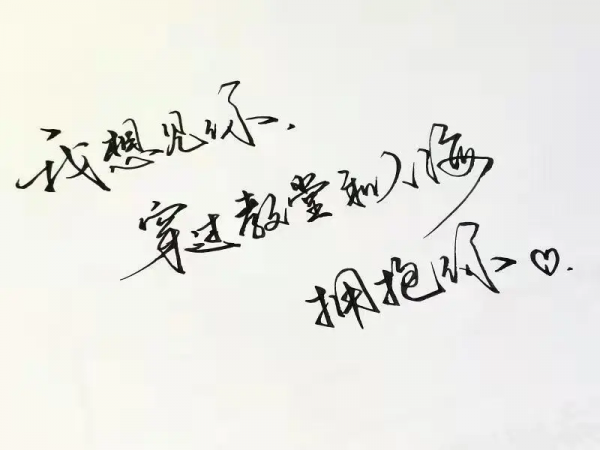 我想见你.
穿过教堂和人海
拥抱你♡.